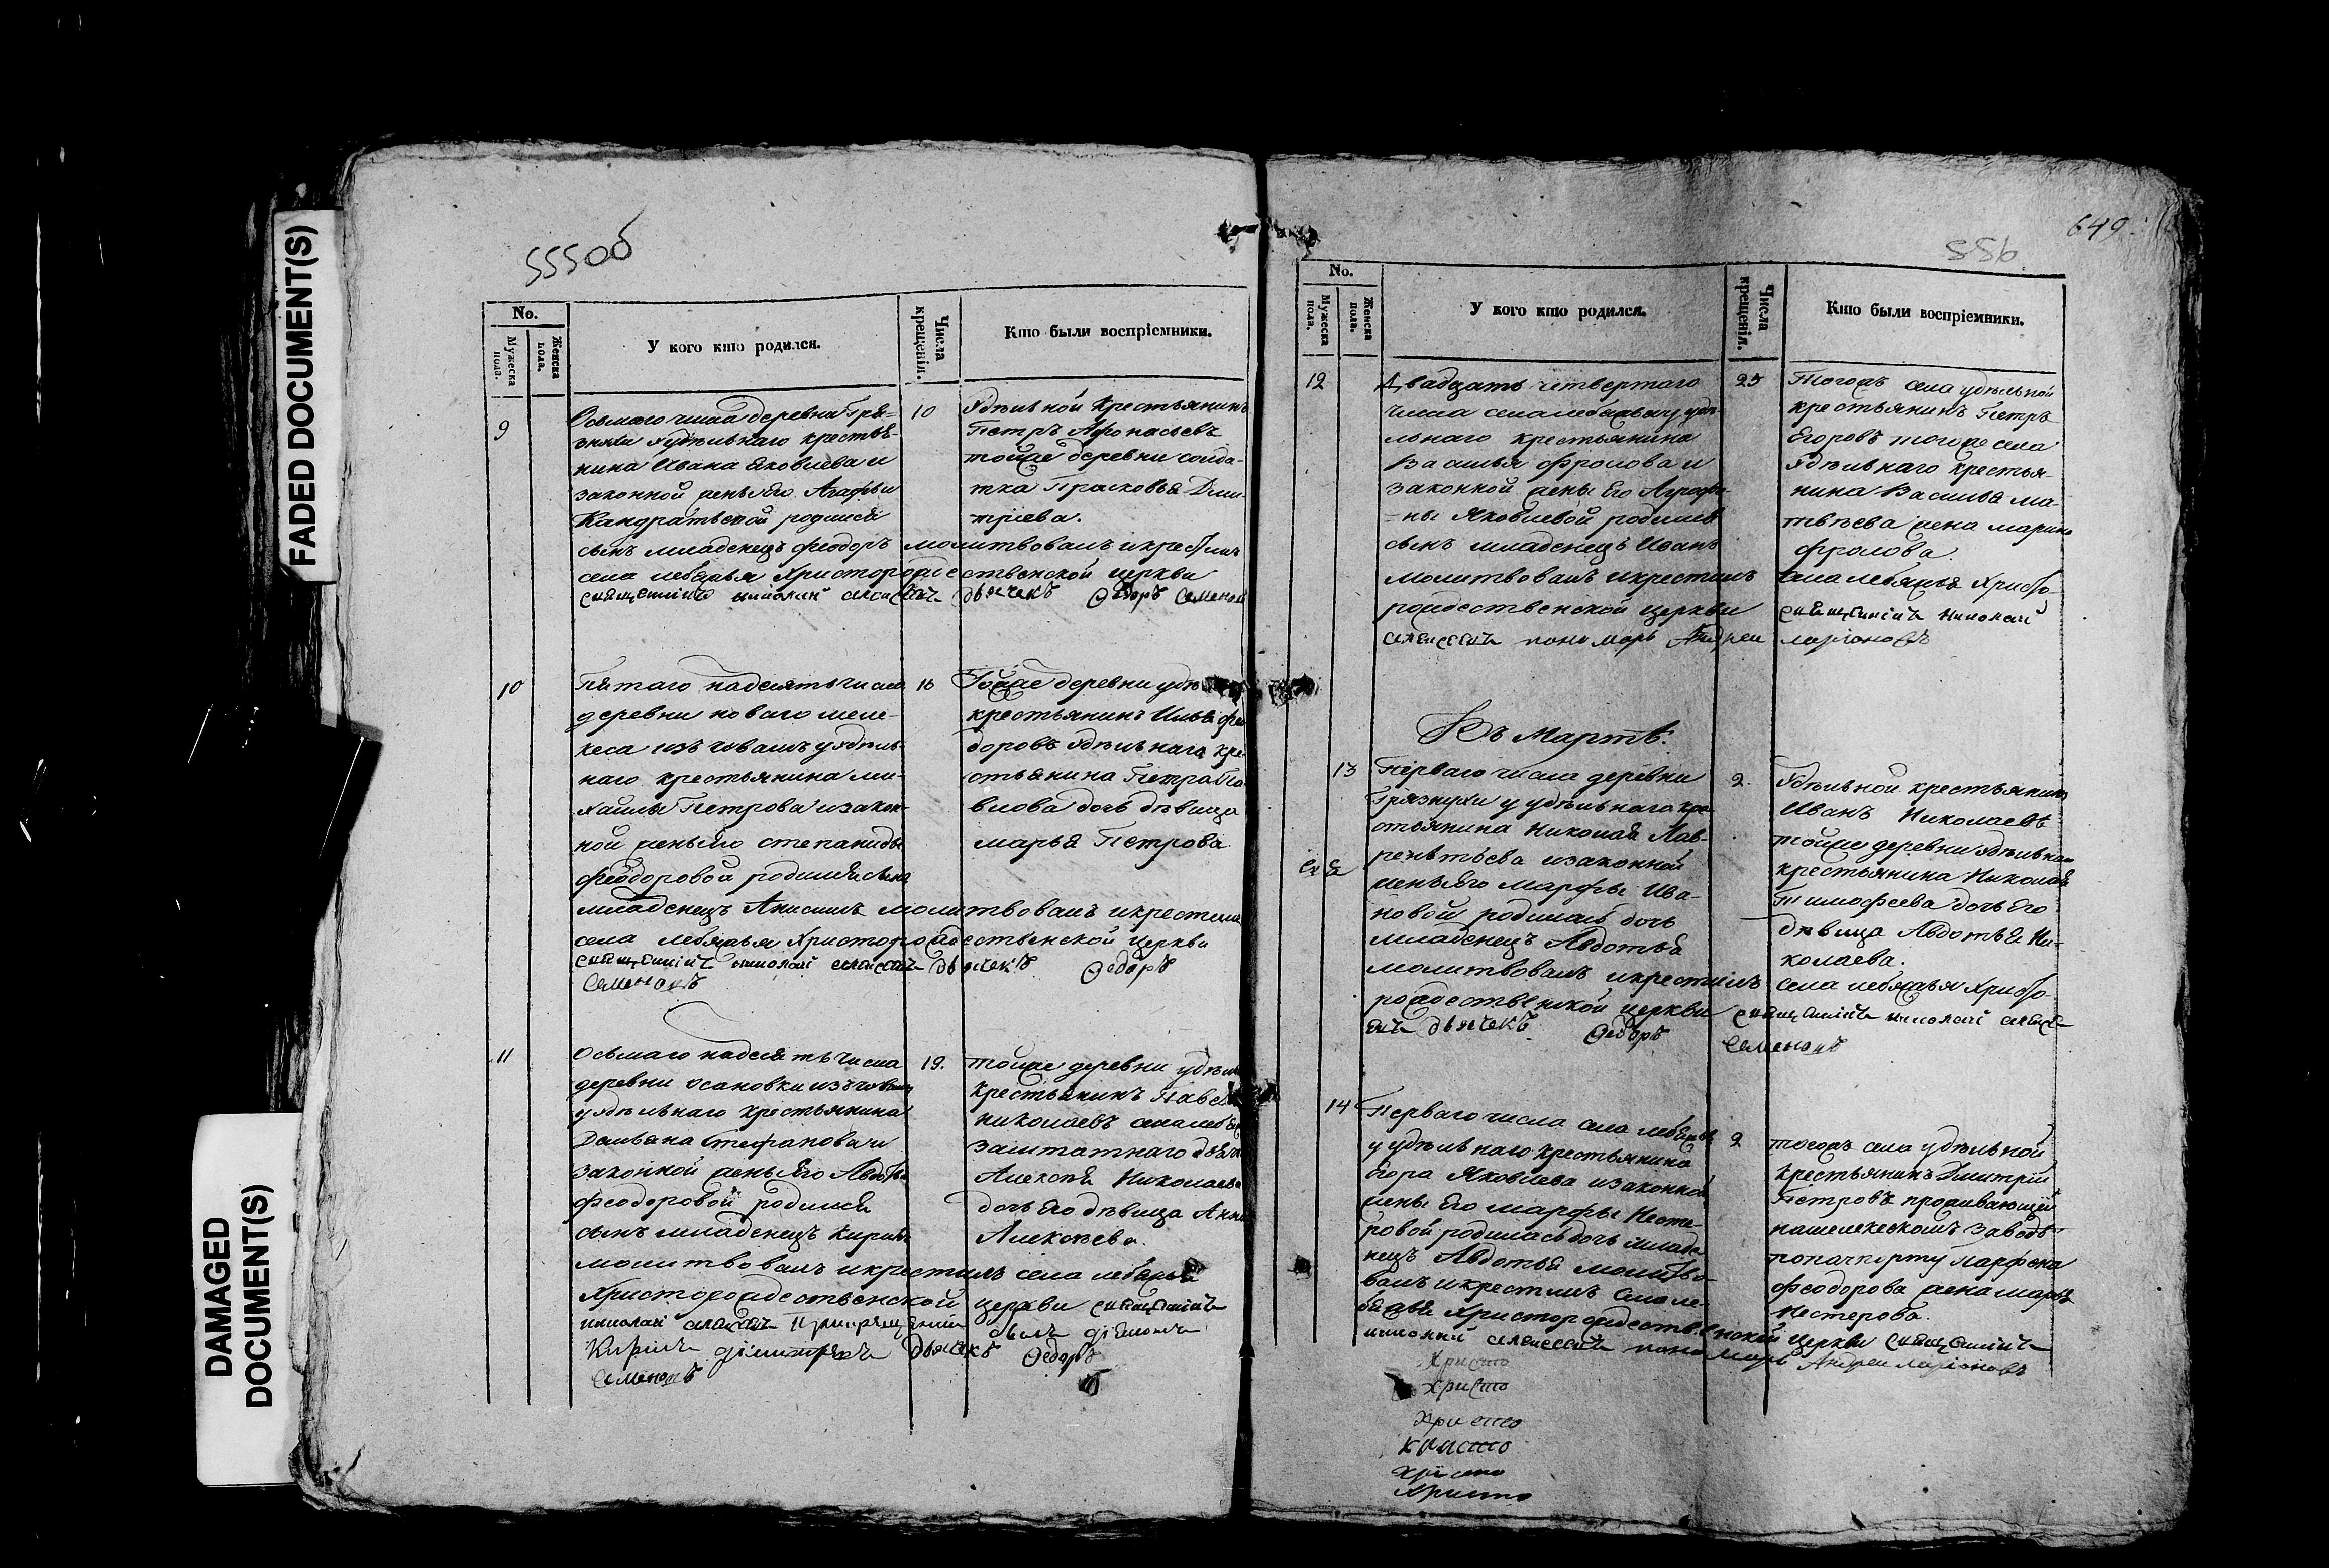 FADED DOCUMENT(S)
DAMAGED
DOCUMENT(S)
555об
No.
Мужеска пола.
Женска пола.
У кого кто родился.
Числа крещенія.
Кто были воспріемники.
9
Осьмаго числа деревни Гря-
знухи Удѣльнаго крестья-
нина Ивана Яковлева и
законной жены Его Агафьи
Кандратьевой родился
сынъ младенецъ Феодоръ молитвовалъ и крестилъ
села лебяжья Христорождественской церкви
священникъ николай алексеевъ дьячекъ Ѳедоръ Семеновъ
10
Удѣльной крестьянинъ
Петръ Афонасьевъ
тойже деревни солда-
тка Прасковья Дми-
тріева.
10
Пятаго надесять числа
деревни новаго меле-
кеса изъ чувашъ у удѣль-
наго крестьянина ми-
хайлы Петрова и закон-
ной жены Его степаниды
феодоровой родился сынъ
младенецъ Анисимъ молитвовалъ и крестилъ
села лебяжья Христорождественской церкви
священникъ николай алексеевъ дьячекъ Ѳедоръ
Семеновъ
16
Тойже деревни удѣ
крестьянинъ Илья фео
доровъ Удѣльнага кре-
стьянина Петра Па-
влова дочь дѣвица
марья Петрова
11
Осьмаго надесять числа
деревни осановки изъ чувашъ
у удѣльнаго крестьянина
Демьяна Стефанова и
законной жены Его Авдотьи
феодоровой родился
сынъ младенецъ Кирилъ
молитвовалъ и крестилъ села лебяжья
Христорождественской церкви священникъ
николай алексеевъ При крещении
Кирилъ дьячекъ Ѳедоръ
Семеновъ
19.
тойже деревни удѣль
крестьянинъ Павелъ
николаевъ села лебяж
заштатнаго дьячк
Алексѣя Николаева
дочь Его дѣвица Анна
Алексѣева.
649.
556
No.
Мужеска пола.
Женска пола.
У кого кто родился.
Числа крещенія.
Кто были воспріемники.
12
Двадцать четвертаго
числа села лебяжья у удѣ-
льнаго крестьянина
Василья фролова и
законной жены Его Аграфе-
ны Яковлевой родился
сынъ младенецъ Иванъ
молитвовалъ и крестилъ села лебяжья Христо-
рождественской церкви священникъ николай
алексеевъ пономарь Андреи ларіоновъ
25
Тогожъ села удѣльной
крестьянинъ Петръ
Егоровъ тогоже села
Удѣльнаго крестья-
нина Василья ма-
твѣева жена марина
фролова.
Въ Мартѣ:
13
Перваго числа деревни
Грязнухи у удѣльнаго кре
стьянина Николая Лав-
рентьева и законной
жены Его марфы Ива-
новой родилась дочь
младенецъ Авдотья
молитвовалъ и крестилъ села лебяжья Христо-
рождественской церкви священникъ николай алексе-
евъ дьячекъ Ѳедоръ Семеновъ
2.
Удѣльной крестьянинъ
Иванъ Николаевъ
тойже деревни удѣльнаго
крестьянина Николая
Тимофеева дочь Его
дѣвица Авдотья Ни-
колаева.
14
Перваго числа села лебяжья
у удѣльнаго крестьянина
Егора Яковлева и законной
жены Его марфы Несте-
ровой родилась дочь младе-
нецъ Авдотья молитво-
валъ и крестилъ села ле-
бяжья Христорождественской церкви священникъ
николай алексеевъ пономарь Андреи ларіоновъ
2
тогожъ села удѣльной
крестьянинъ Дмитрій
Петровъ проживающей
на мелекескомъ заводѣ
по пачпорту Парфена
феодорова жена марья
Нестерова.
Христо
Христо
Христо
Христо
Христо
Христо